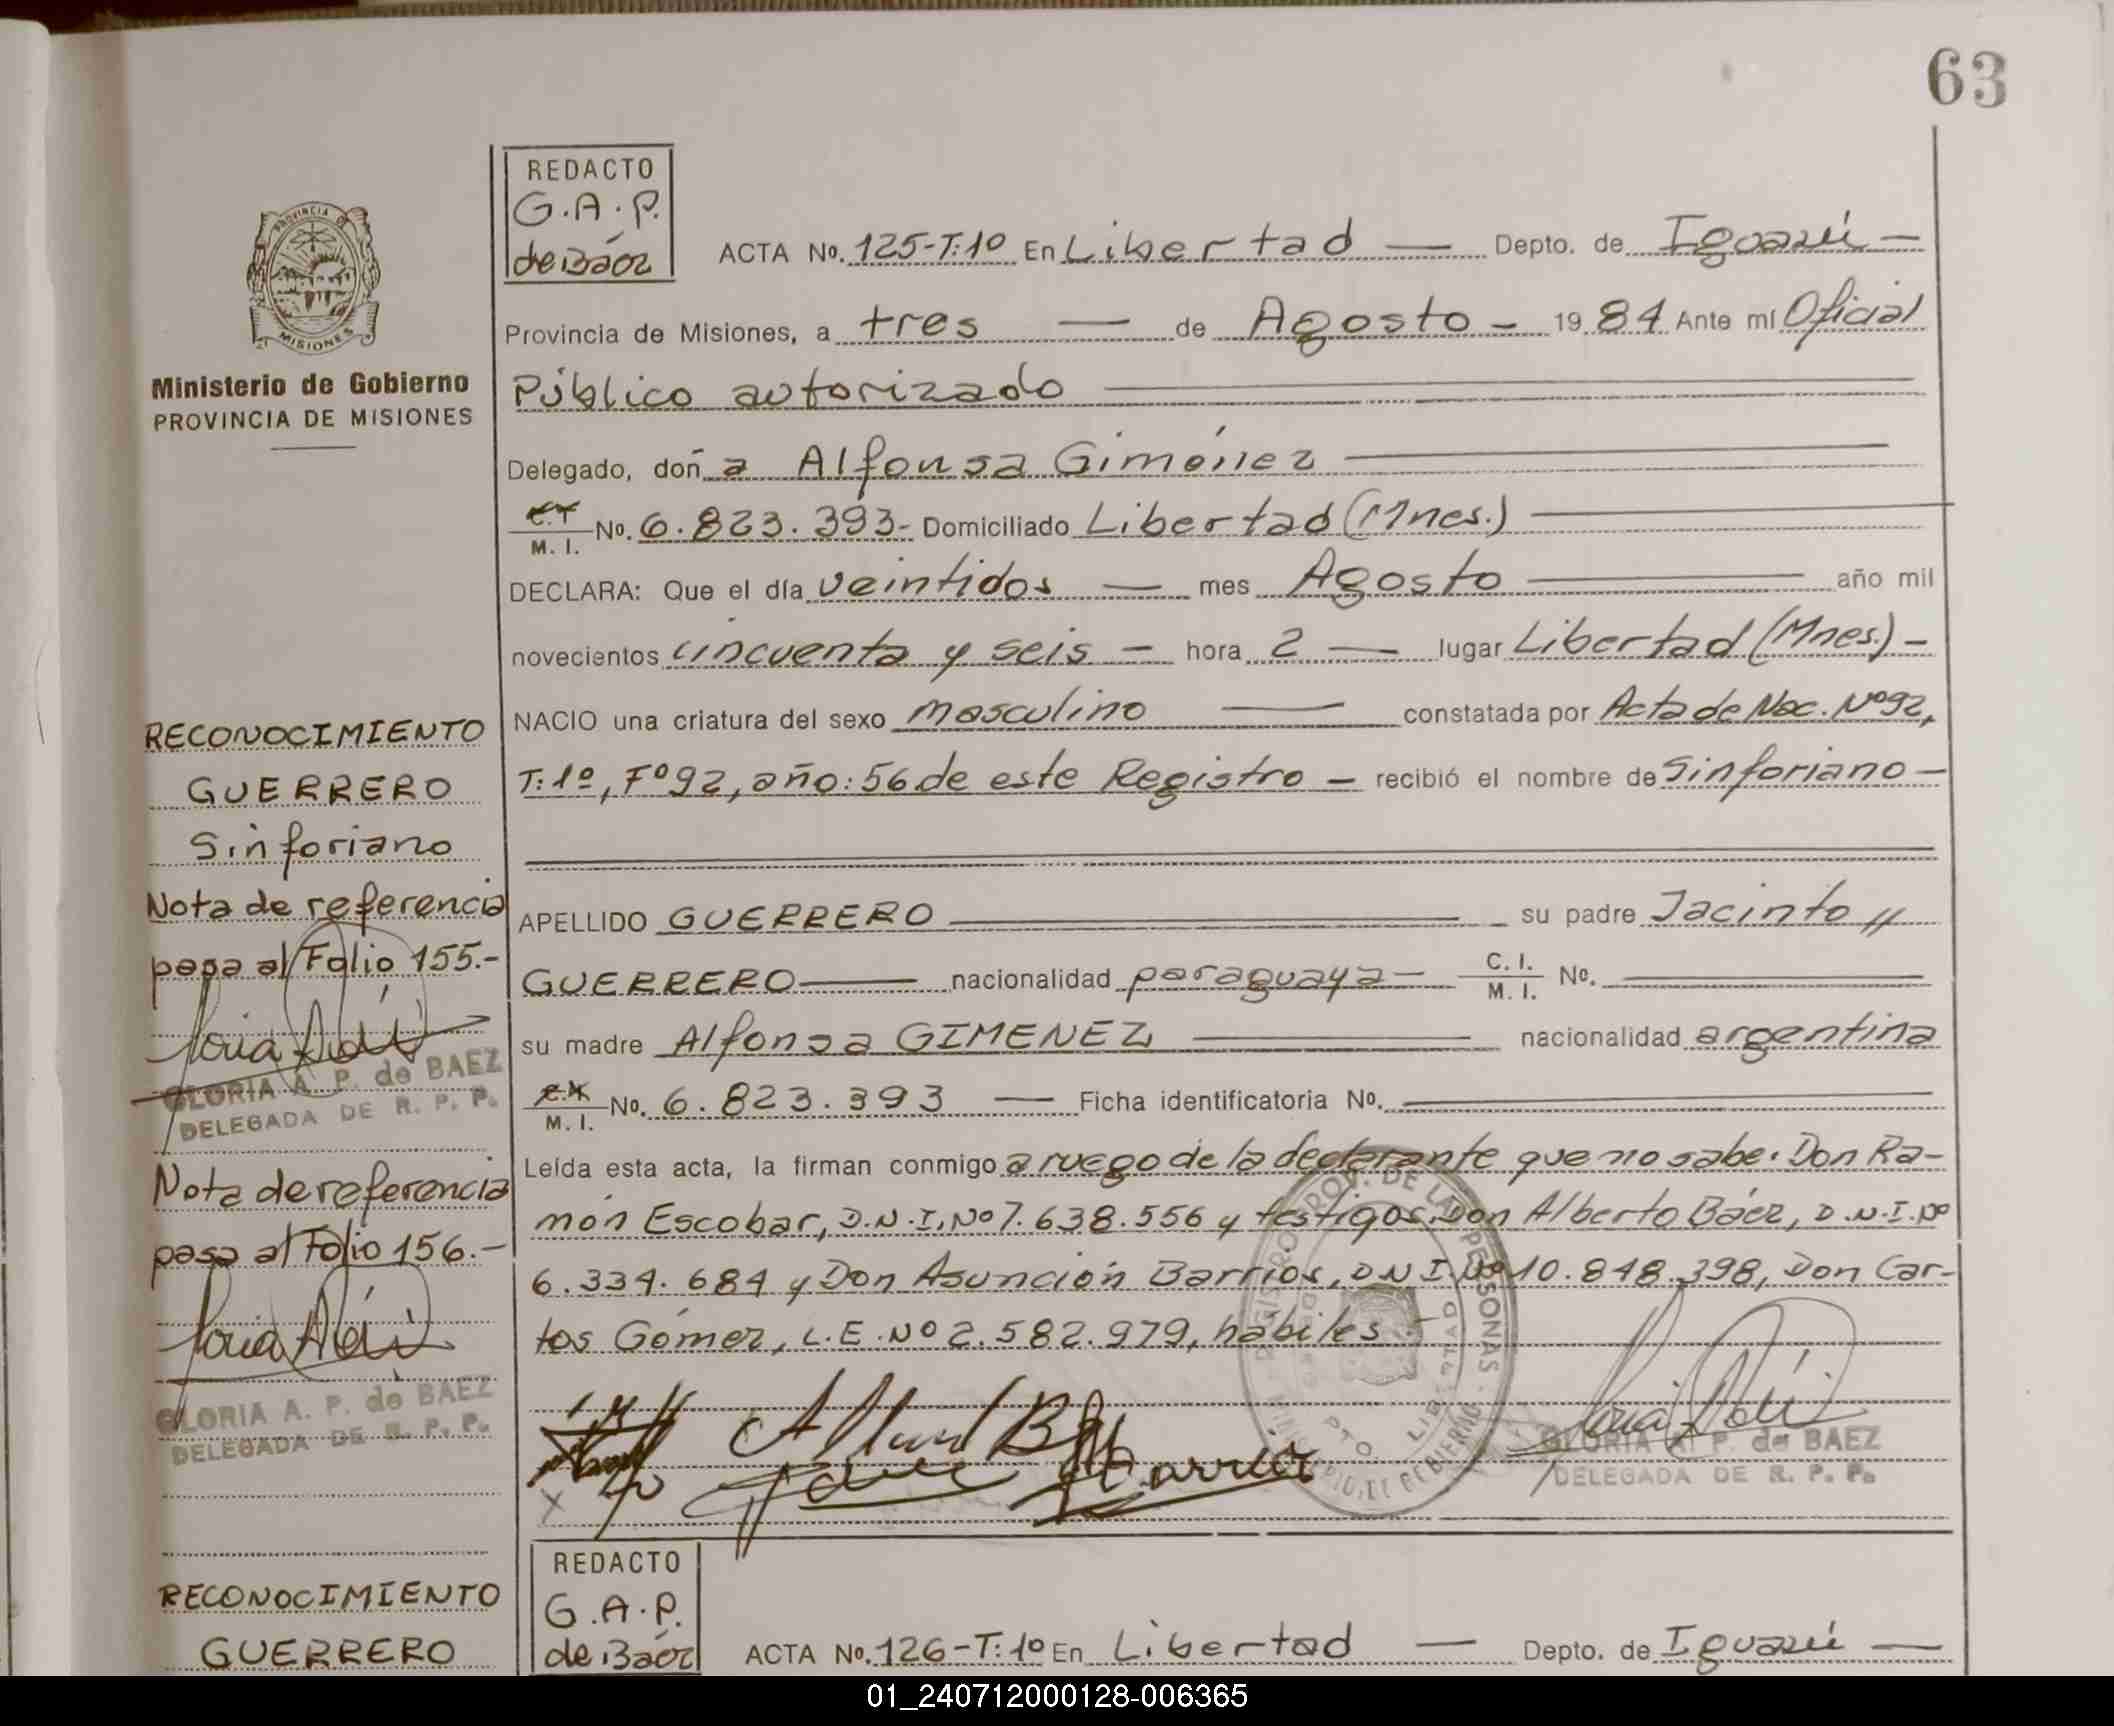 63
REDACTO
G.A.P.
de Báez
PROVINCIA DE
MISIONES
Ministerio de Gobierno
PROVINCIA DE MISIONES
ACTA No. 125-T:1º En Libertad — Depto. de Iguazú —
Provincia de Misiones, a tres — de Agosto — 1984 Ante mí Oficial
Público autorizado
Delegado, doña Alfonsa Giménez
C.I.
M. I. No. 6.823.393- Domiciliado Libertad (Mnes.)
DECLARA: Que el día veintidos — mes Agosto — año mil
novecientos cincuenta y seis — hora 2 — lugar Libertad (Mnes.) —
NACIO una criatura del sexo masculino — constatada por Acta de Nac. Nº92,
T:1º, Fº92, año:56 de este Registro — recibió el nombre de Sinforiano —
APELLIDO GUERRERO su padre Jacinto //
GUERRERO — nacionalidad paraguaya — C. I.
M. I. No.
su madre Alfonsa GIMENEZ nacionalidad argentina
M. I. No. 6.823.393 — Ficha identificatoria No.
Leída esta acta, la firman conmigo a ruego de la declarante que no sabe. Don Ra-
món Escobar, D.N.I. Nº 7.638.556 y testigos Don Alberto Báez, D.N.I. Nº
6.334.684 y Don Asunción Barrios, D.N.I. Nº 10.848.398, Don Car-
los Gómez, L.E. Nº 2.582.979, hábiles —
GLORIA A. P. de BAEZ
DELEGADA DE R. P. P.
RECONOCIMIENTO
GUERRERO
Sinforiano
Nota de referencia
pasa al Folio 155.-
GLORIA A. P. de BAEZ
DELEGADA DE R. P. P.
Nota de referencia
pasa al Folio 156.-
GLORIA A. P. de BAEZ
DELEGADA DE R. P. P.
RECONOCIMIENTO
GUERRERO
REDACTO
G.A.P.
de Báez
ACTA No. 126-T:1º En Libertad — Depto. de Iguazú —
01_240712000128-006365